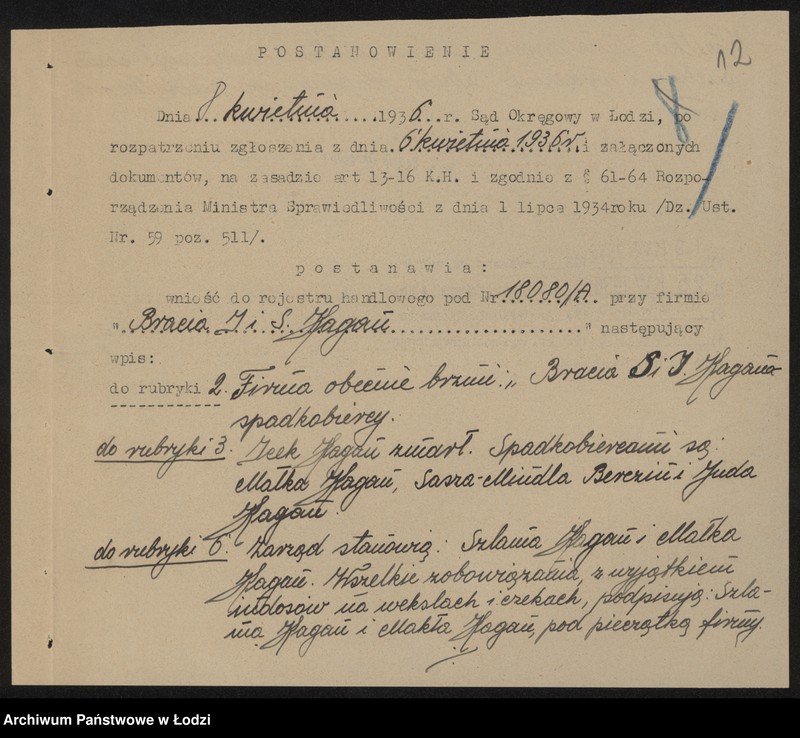 12
8
POSTANOWIENIE
Dnia 8 kwietnia 1936. r. Sąd Okręgowy w Łodzi, po
rozpatrzeniu zgłoszenia z dnia 6 kwietnia 1936 r. i załączonych
dokumentów, na zasadzie art 13-16 K.H. i zgodnie z § 61-64 Rozpo-
rządzenia Ministra Sprawiedliwości z dnia 1 lipca 1934roku /Dz. Ust.
Nr. 59 poz. 511/.
postanawia:
wnieść do rejestru handlowego pod Nr 18080/A. przy firmie
"Bracia J i S. Hagan" następujący
wpis:
do rubryki 2. Firma obecnie brzmi: „Bracia S i J. Hagan
spadkobiercy.
do rubryki 3. Icek Hagan zmarł. Spadkobiercami są:
Małka Hagan, Sasza-Mindla Berezin i Juda
Hagan.
do rubryki 6. Zarząd stanowią: Szlama Hagan i Małka
Hagan. Wszelkie zobowiązania, z wyjątkiem
indosów na wekslach i czekach, podpisują: Szla-
ma Hagan i Makła Hagan, pod pieczątką firmy.
Archiwum Państwowe w Łodzi